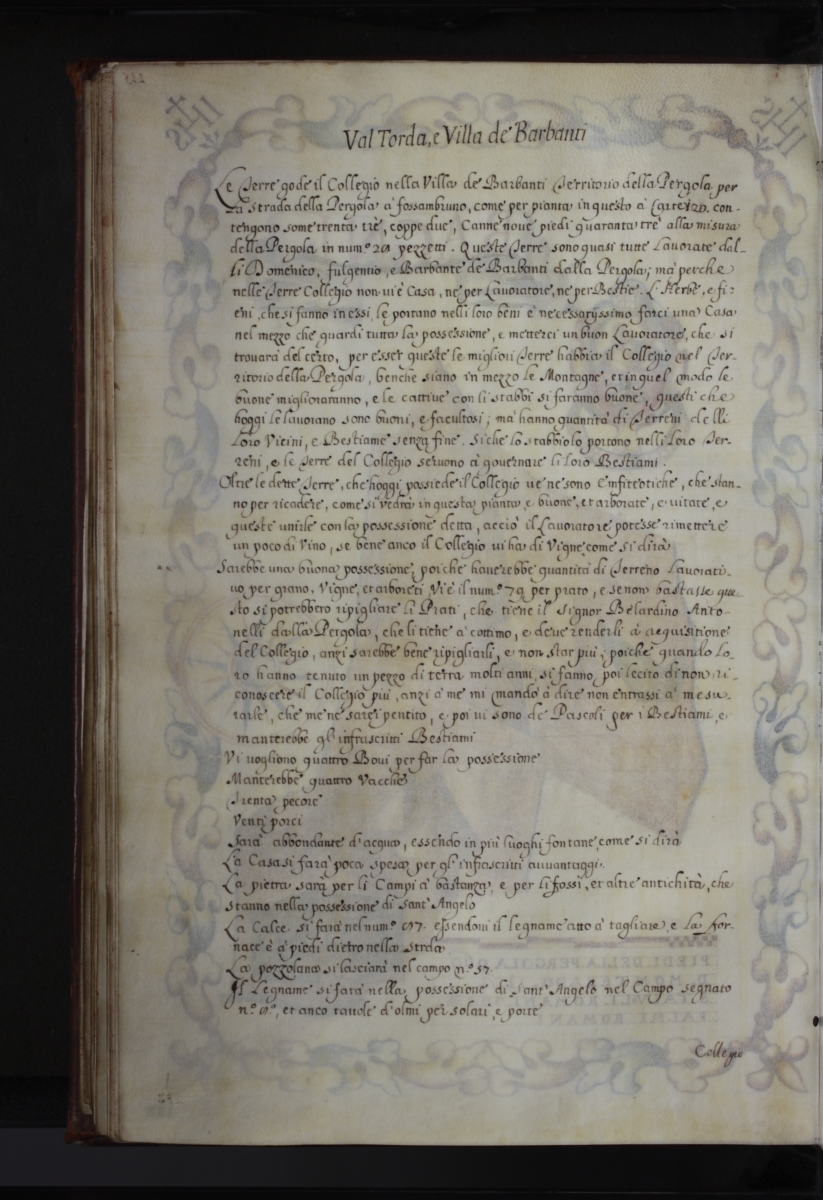 Val Torda, e Villa de Barbanti
Le Terre gode il Collegio nella Villa de Barbanti Territorio della Pergola per
La Strada della Pergola à fossambruno, come per pianta in questo à Carte con-
tengono some trenta trè, coppe due, Canne noue piedi quaranta trè alla misura
della Pergola in num.º pezzetti. Queste Terre sono quasi tutte Lauorate dal-
li Domenico, fulgentio, e Barbante de Barbanti dalla Pergola, mà perche
nelle Terre Collegio non ui è Casa, ne per Lauoratore, ne per Bestie. L'Herbe, e fi-
eni, che si fanno in essi, le portano nelli loro beni è necessaryssimo farci una Casa
nel mezzo che guardi tutta la possessione, e metterci un buon Lauoratore, che si
trouarà del certo, per esser queste le migliori Terre habbia il Collegio nel Ter-
ritorio della Pergola, benche siano in mezzo le Montagne, et in quel modo le
buone miglioraranno, e le cattiue con li stabbi si faranno buone, questi che
hoggi le lauorano sono buoni, e facultosi; mà hanno quantità di Terreni delli
Loro Vicini, e Bestiame senza fine. Siche lo stabbio lo portono nelli loro Ter-
reni, e le Terre del Collegio seruono à gouernare li loro Bestiami.
Oltre le dette Terre, che hoggi possiede il Collegio ue ne sono Emfiteotiche, che stan-
no per ricadere, come si uedrà in questa pianta e buone, et arborate, e uitate, e
queste unirle con la possessione detta, acciò il Lauoratore potesse rimettere
un poco di Vino, se bene anco il Collegio ui ha di Vigne come si dirà
Sarebbe una buona possessione, poiche hauerebbe quantità di Terreno Lauorati-
uo per grano, Vigne, et arboreti Vi è il num.º 79 per prato, e se non bastasse que-
sto si potrebbero ripigliare li Prati, che tiene il Signor Belardino Anto-
nelli dalla Pergola, che li tiene à cottimo, e deue renderli à requisitione
del Collegio, anzi sarebbe bene ripigliarli, e non star più, poiche quando lo-
ro hanno tenuto un pezzo di terra molti anni, si fanno poi lecito di non ri-
conoscere il Collegio più, anzi à me mi mandò à dire non entrassi à mesu-
rarle, che me ne sarei pentito, e poi ui sono de Pascoli per i Bestiami, e
manterebbe gl'infrascritti Bestiami
Vi uogliono quattro Boui per far la possessione
Manterebbe quattro Vacche
Trenta pecore
Venti porci
Sarà abbondante d'acqua, essendo in più luoghi fontane, come si dirà
La Casa si farà poca spesa per gl'infrascritti auuantaggi.
La pietra sarà per li Campi à bastanza, e per li fossi, et altre antichità, che
stanno nella possessione di Sant'Angelo
La Calce si farà nel num.º essendoui il legname atto à tagliare, e la for-
nace è à piedi dietro nella Strda
La pozzolana si lasciarà nel campo n.º 57.
Il Legname si farà nella possessione di Sant'Angelo nel Campo segnato
n.º et anco tauole d'olmi per solari, e porte
Collegio